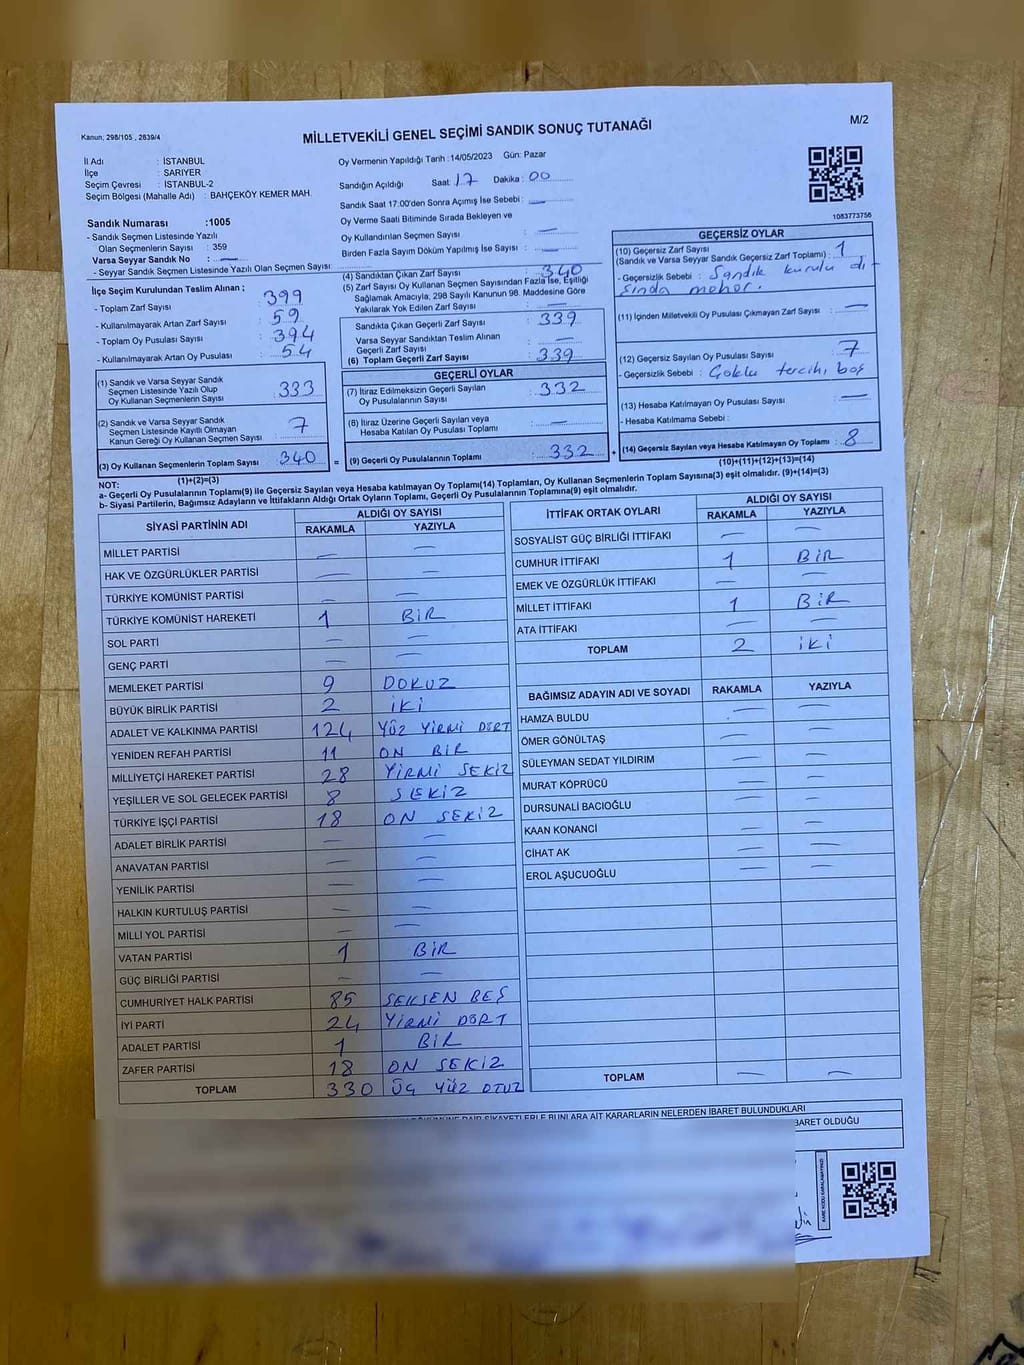 Kanun; 298/105 , 2839/4
MİLLETVEKİLİ GENEL SEÇİMİ SANDIK SONUÇ TUTANAĞI
M/2
İl Adı : İSTANBUL
İlçe : SARIYER
Seçim Çevresi : İSTANBUL-2
Seçim Bölgesi (Mahalle Adı) : BAHÇEKÖY KEMER MAH.
Sandık Numarası :1005
- Sandık Seçmen Listesinde Yazılı
Olan Seçmenlerin Sayısı : 359
Varsa Seyyar Sandık No : —
- Seyyar Sandık Seçmen Listesinde Yazılı Olan Seçmen Sayısı:
İlçe Seçim Kurulundan Teslim Alınan ;
- Toplam Zarf Sayısı : 399
- Kullanılmayarak Artan Zarf Sayısı : 59
- Toplam Oy Pusulası Sayısı : 394
- Kullanılmayarak Artan Oy Pusulası : 54
(1) Sandık ve Varsa Seyyar Sandık
Seçmen Listesinde Yazılı Olup
Oy Kullanan Seçmenlerin Sayısı : 333
(2) Sandık ve Varsa Seyyar Sandık
Seçmen Listesinde Kayıtlı Olmayan
Kanun Gereği Oy Kullanan Seçmen Sayısı : 7
(3) Oy Kullanan Seçmenlerin Toplam Sayısı : 340
(1)+(2)=(3)
Oy Vermenin Yapıldığı Tarih :14/05/2023 Gün: Pazar
Sandığın Açıldığı Saat : 17 Dakika : 00
Sandık Saat 17:00'den Sonra Açılmış İse Sebebi : —
Oy Verme Saati Bitiminde Sırada Bekleyen ve
Oy Kullandırılan Seçmen Sayısı : —
Birden Fazla Sayım Döküm Yapılmış İse Sayısı : —
(4) Sandıktan Çıkan Zarf Sayısı : 340
(5) Zarf Sayısı Oy Kullanan Seçmen Sayısından Fazla İse, Eşitliği
Sağlamak Amacıyla, 298 Sayılı Kanunun 98. Maddesine Göre
Yakılarak Yok Edilen Zarf Sayısı : —
Sandıkta Çıkan Geçerli Zarf Sayısı : 339
Varsa Seyyar Sandıktan Teslim Alınan
Geçerli Zarf Sayısı : —
(6) Toplam Geçerli Zarf Sayısı : 339
GEÇERLİ OYLAR
(7) İtiraz Edilmeksizin Geçerli Sayılan
Oy Pusulalarının Sayısı : 332
(8) İtiraz Üzerine Geçerli Sayılan veya
Hesaba Katılan Oy Pusulası Toplamı : —
= (9) Geçerli Oy Pusulalarının Toplamı : 332 +
1083773756
GEÇERSİZ OYLAR
(10) Geçersiz Zarf Sayısı
(Sandık ve Varsa Seyyar Sandık Geçersiz Zarf Toplamı) : 1
- Geçersizlik Sebebi : Sandık kurulu dı-
sında mühür.
(11) İçinden Milletvekili Oy Pusulası Çıkmayan Zarf Sayısı : —
(12) Geçersiz Sayılan Oy Pusulası Sayısı : 7
- Geçersizlik Sebebi : Çoklu tercih, boş
(13) Hesaba Katılmayan Oy Pusulası Sayısı : —
- Hesaba Katılmama Sebebi :
(14) Geçersiz Sayılan veya Hesaba Katılmayan Oy Toplamı : 8
(10)+(11)+(12)+(13)=(14)
NOT:
a- Geçerli Oy Pusulalarının Toplamı(9) ile Geçersiz Sayılan veya Hesaba katılmayan Oy Toplamı(14) Toplamları, Oy Kullanan Seçmenlerin Toplam Sayısına(3) eşit olmalıdır. (9)+(14)=(3)
b- Siyasi Partilerin, Bağımsız Adayların ve İttifakların Aldığı Ortak Oyların Toplamı, Geçerli Oy Pusulalarının Toplamına(9) eşit olmalıdır.
SİYASİ PARTİNİN ADI ALDIĞI OY SAYISI
RAKAMLA YAZIYLA
MİLLET PARTİSİ — —
HAK VE ÖZGÜRLÜKLER PARTİSİ — —
TÜRKİYE KOMÜNİST PARTİSİ — —
TÜRKİYE KOMÜNİST HAREKETİ 1 BİR
SOL PARTİ — —
GENÇ PARTİ — —
MEMLEKET PARTİSİ 9 DOKUZ
BÜYÜK BİRLİK PARTİSİ 2 İKİ
ADALET VE KALKINMA PARTİSİ 124 YÜZ YİRMİ DÖRT
YENİDEN REFAH PARTİSİ 11 ON BİR
MİLLİYETÇİ HAREKET PARTİSİ 28 YİRMİ SEKİZ
YEŞİLLER VE SOL GELECEK PARTİSİ 8 SEKİZ
TÜRKİYE İŞÇİ PARTİSİ 18 ON SEKİZ
ADALET BİRLİK PARTİSİ — —
ANAVATAN PARTİSİ — —
YENİLİK PARTİSİ — —
HALKIN KURTULUŞ PARTİSİ — —
MİLLİ YOL PARTİSİ — —
VATAN PARTİSİ 1 BİR
GÜÇ BİRLİĞİ PARTİSİ — —
CUMHURİYET HALK PARTİSİ 85 SEKSEN BEŞ
İYİ PARTİ 24 YİRMİ DÖRT
ADALET PARTİSİ 1 BİR
ZAFER PARTİSİ 18 ON SEKİZ
TOPLAM 330 ÜÇ YÜZ OTUZ
İTTİFAK ORTAK OYLARI ALDIĞI OY SAYISI
RAKAMLA YAZIYLA
SOSYALİST GÜÇ BİRLİĞİ İTTİFAKI — —
CUMHUR İTTİFAKI 1 BİR
EMEK VE ÖZGÜRLÜK İTTİFAKI — —
MİLLET İTTİFAKI 1 BİR
ATA İTTİFAKI — —
TOPLAM 2 İKİ
BAĞIMSIZ ADAYIN ADI VE SOYADI RAKAMLA YAZIYLA
HAMZA BULDU — —
ÖMER GÖNÜLTAŞ — —
SÜLEYMAN SEDAT YILDIRIM — —
MURAT KÖPRÜCÜ — —
DURSUNALİ BACIOĞLU — —
KAAN KONANCİ — —
CİHAT AK — —
EROL AŞUCUOĞLU — —
TOPLAM — —
DÖKÜMÜNE DAİR ŞİKAYETLERLE BUNLARA AİT KARARLARIN NELERDEN İBARET BULUNDUKLARI
BARET OLDUĞU
KARE KODU KARALAMAYINIZ